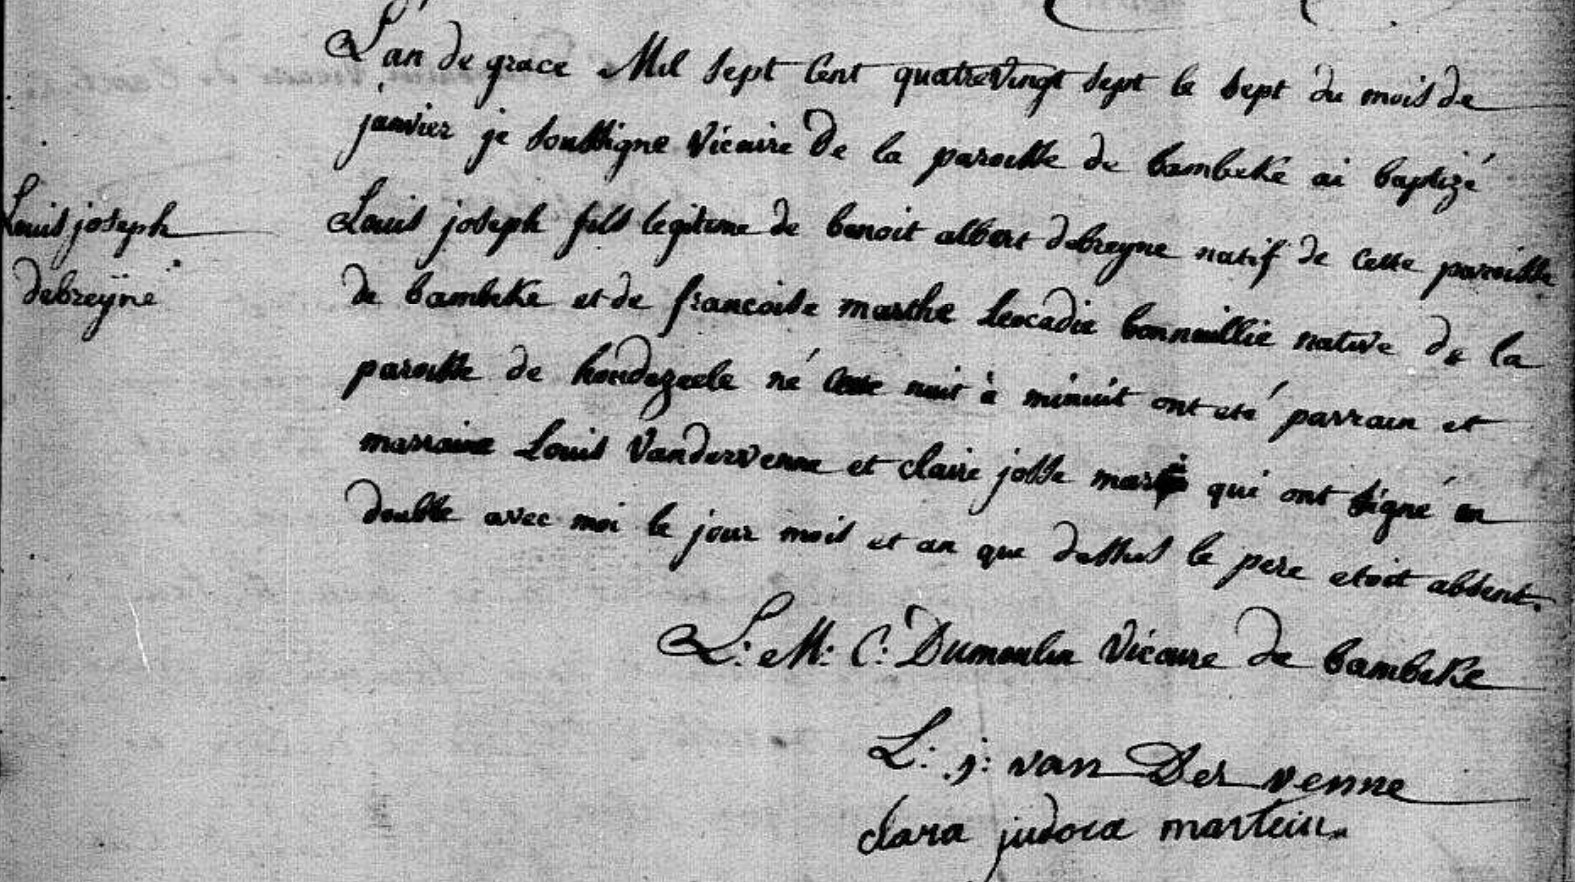 L'an de grace Mil sept Cent quatrevingt sept le sept du mois de
janvier je soussigne Vicaire De la paroisse de bambeke ai baptizé
Louis joseph
debreyne
Louis joseph fils legitime de benoit albert debreyne natif de cette paroisse
de bambeke et de francoise marthe Leocadie bonnaillie native de la
paroisse de houdezeele né cette nuit à minuit ont eté parrain et
marraine Louis Vandervenne et claire josse qui ont signé en
double avec moi le jour mois et an que dessus le pere etoit absent.
L: M: C: Dumoulin Vicaire de bambeke
L: j: van Der venne
clara judoca martein